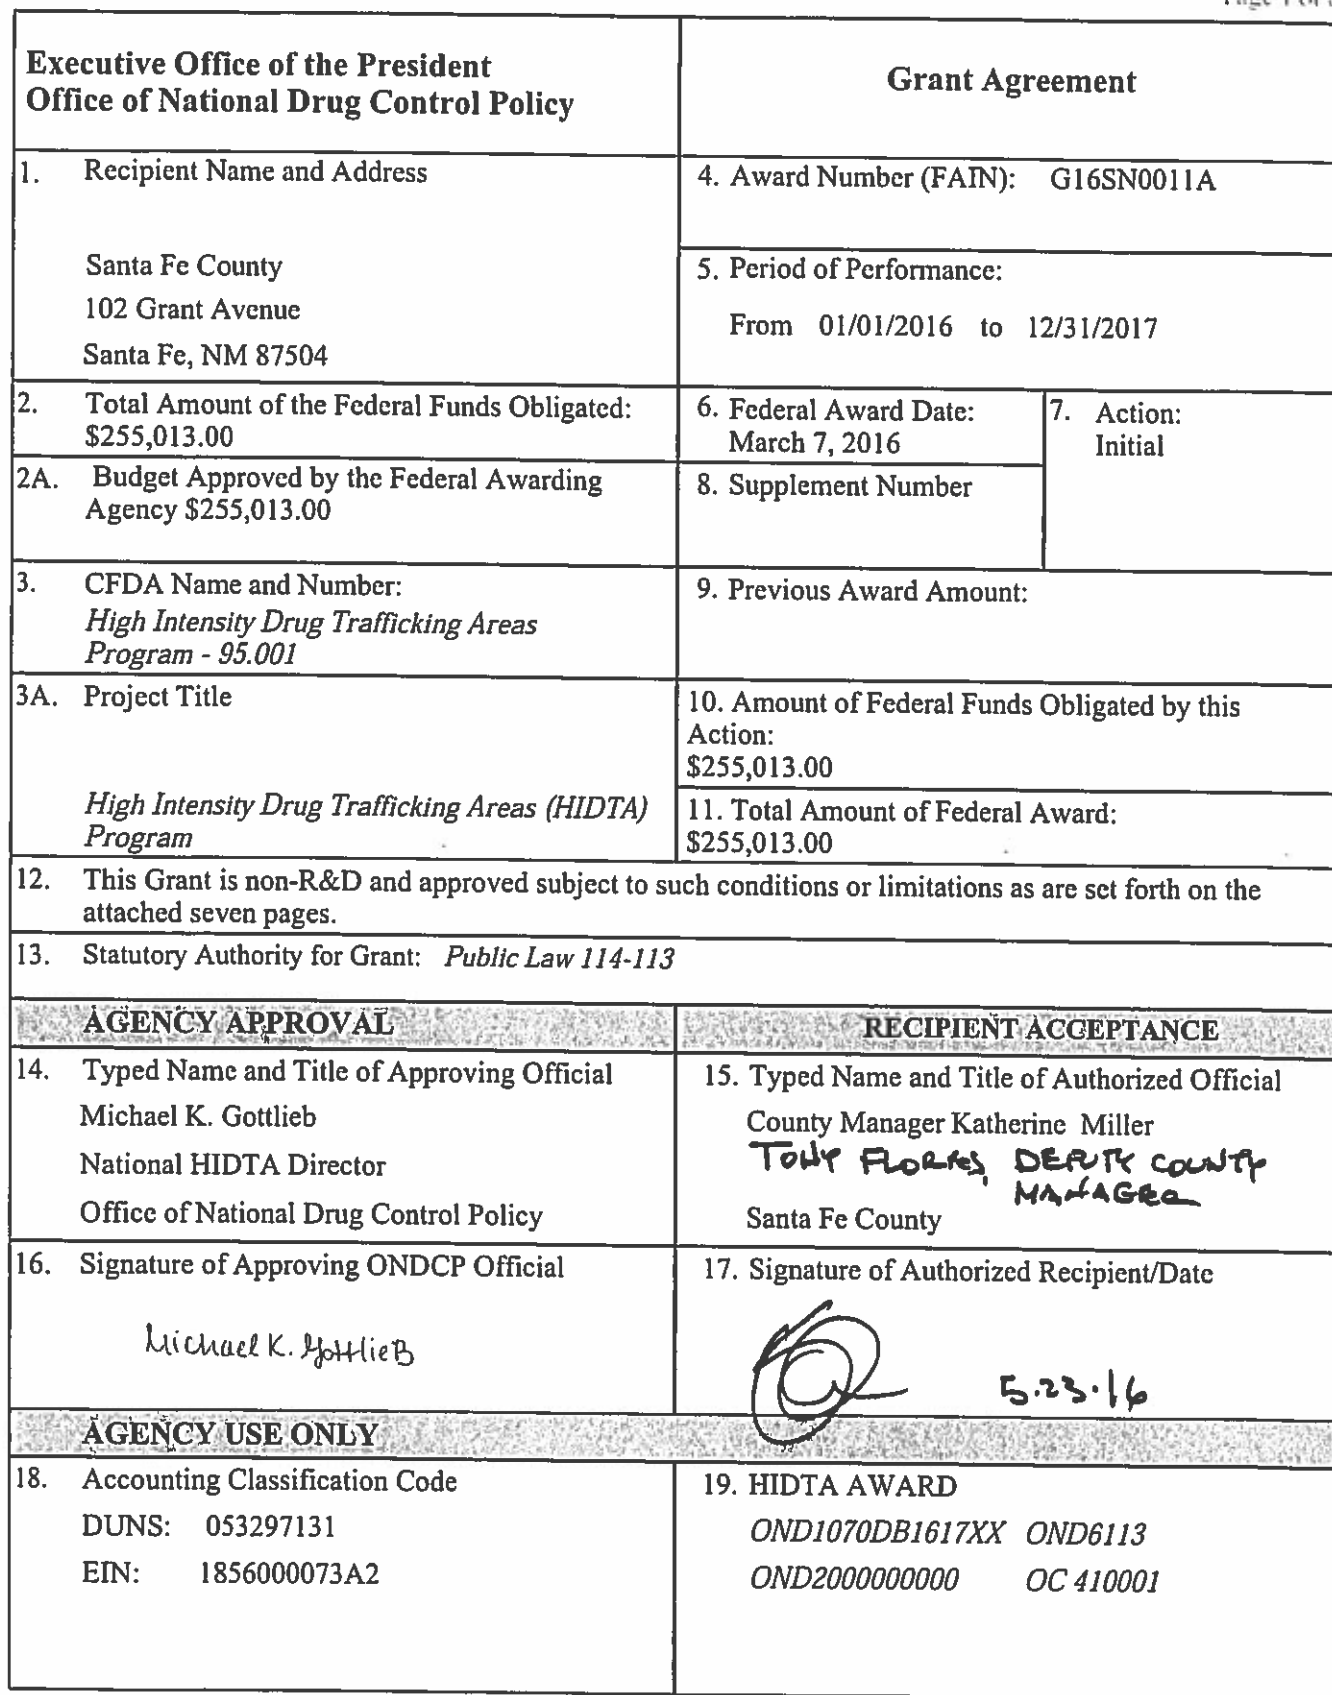 Executive Office of the President
Office of National Drug Control Policy
Grant Agreement
1. Recipient Name and Address
Santa Fe County
102 Grant Avenue
Santa Fe, NM 87504
4. Award Number (FAIN): G16SN0011A
5. Period of Performance:
From 01/01/2016 to 12/31/2017
2. Total Amount of the Federal Funds Obligated:
$255,013.00
2A. Budget Approved by the Federal Awarding
Agency $255,013.00
6. Federal Award Date:
March 7, 2016
7. Action:
Initial
8. Supplement Number
3. CFDA Name and Number:
High Intensity Drug Trafficking Areas
Program - 95.001
9. Previous Award Amount:
3A. Project Title
High Intensity Drug Trafficking Areas (HIDTA)
Program
10. Amount of Federal Funds Obligated by this
Action:
$255,013.00
11. Total Amount of Federal Award:
$255,013.00
12. This Grant is non-R&D and approved subject to such conditions or limitations as are set forth on the
attached seven pages.
13. Statutory Authority for Grant: Public Law 114-113
AGENCY APPROVAL
RECIPIENT ACCEPTANCE
14. Typed Name and Title of Approving Official
Michael K. Gottlieb
National HIDTA Director
Office of National Drug Control Policy
15. Typed Name and Title of Authorized Official
County Manager Katherine Miller
TONY FLORES, DEPUTY COUNTY
MANAGER
Santa Fe County
16. Signature of Approving ONDCP Official
Michael K. Gottlieb
17. Signature of Authorized Recipient/Date
5.23.16
AGENCY USE ONLY
18. Accounting Classification Code
DUNS: 053297131
EIN: 1856000073A2
19. HIDTA AWARD
OND1070DB1617XX OND6113
OND2000000000 OC 410001